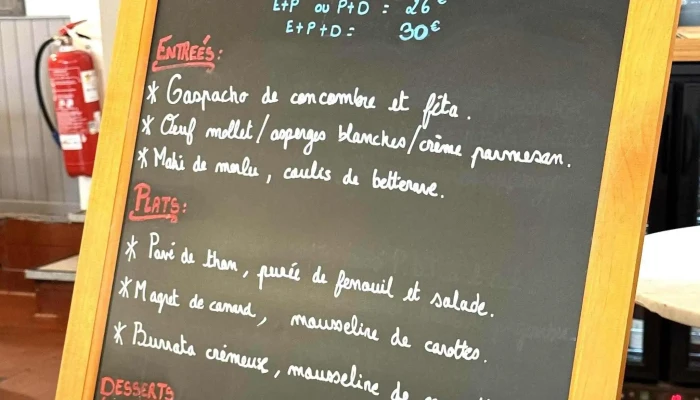 E+P ou P+D : 26€
E+P+D : 30€
ENTREÉS :
* Gaspacho de concombre et féta.
* Œuf mollet / asperges blanches / crème parmesan.
* Maki de merlu, coulis de betterave.
PLATS :
* Pavé de thon, purée de fenouil et salade.
* Magret de canard, mousseline de carottes.
* Burrata crémeuse, mousseline de
DESSERTS